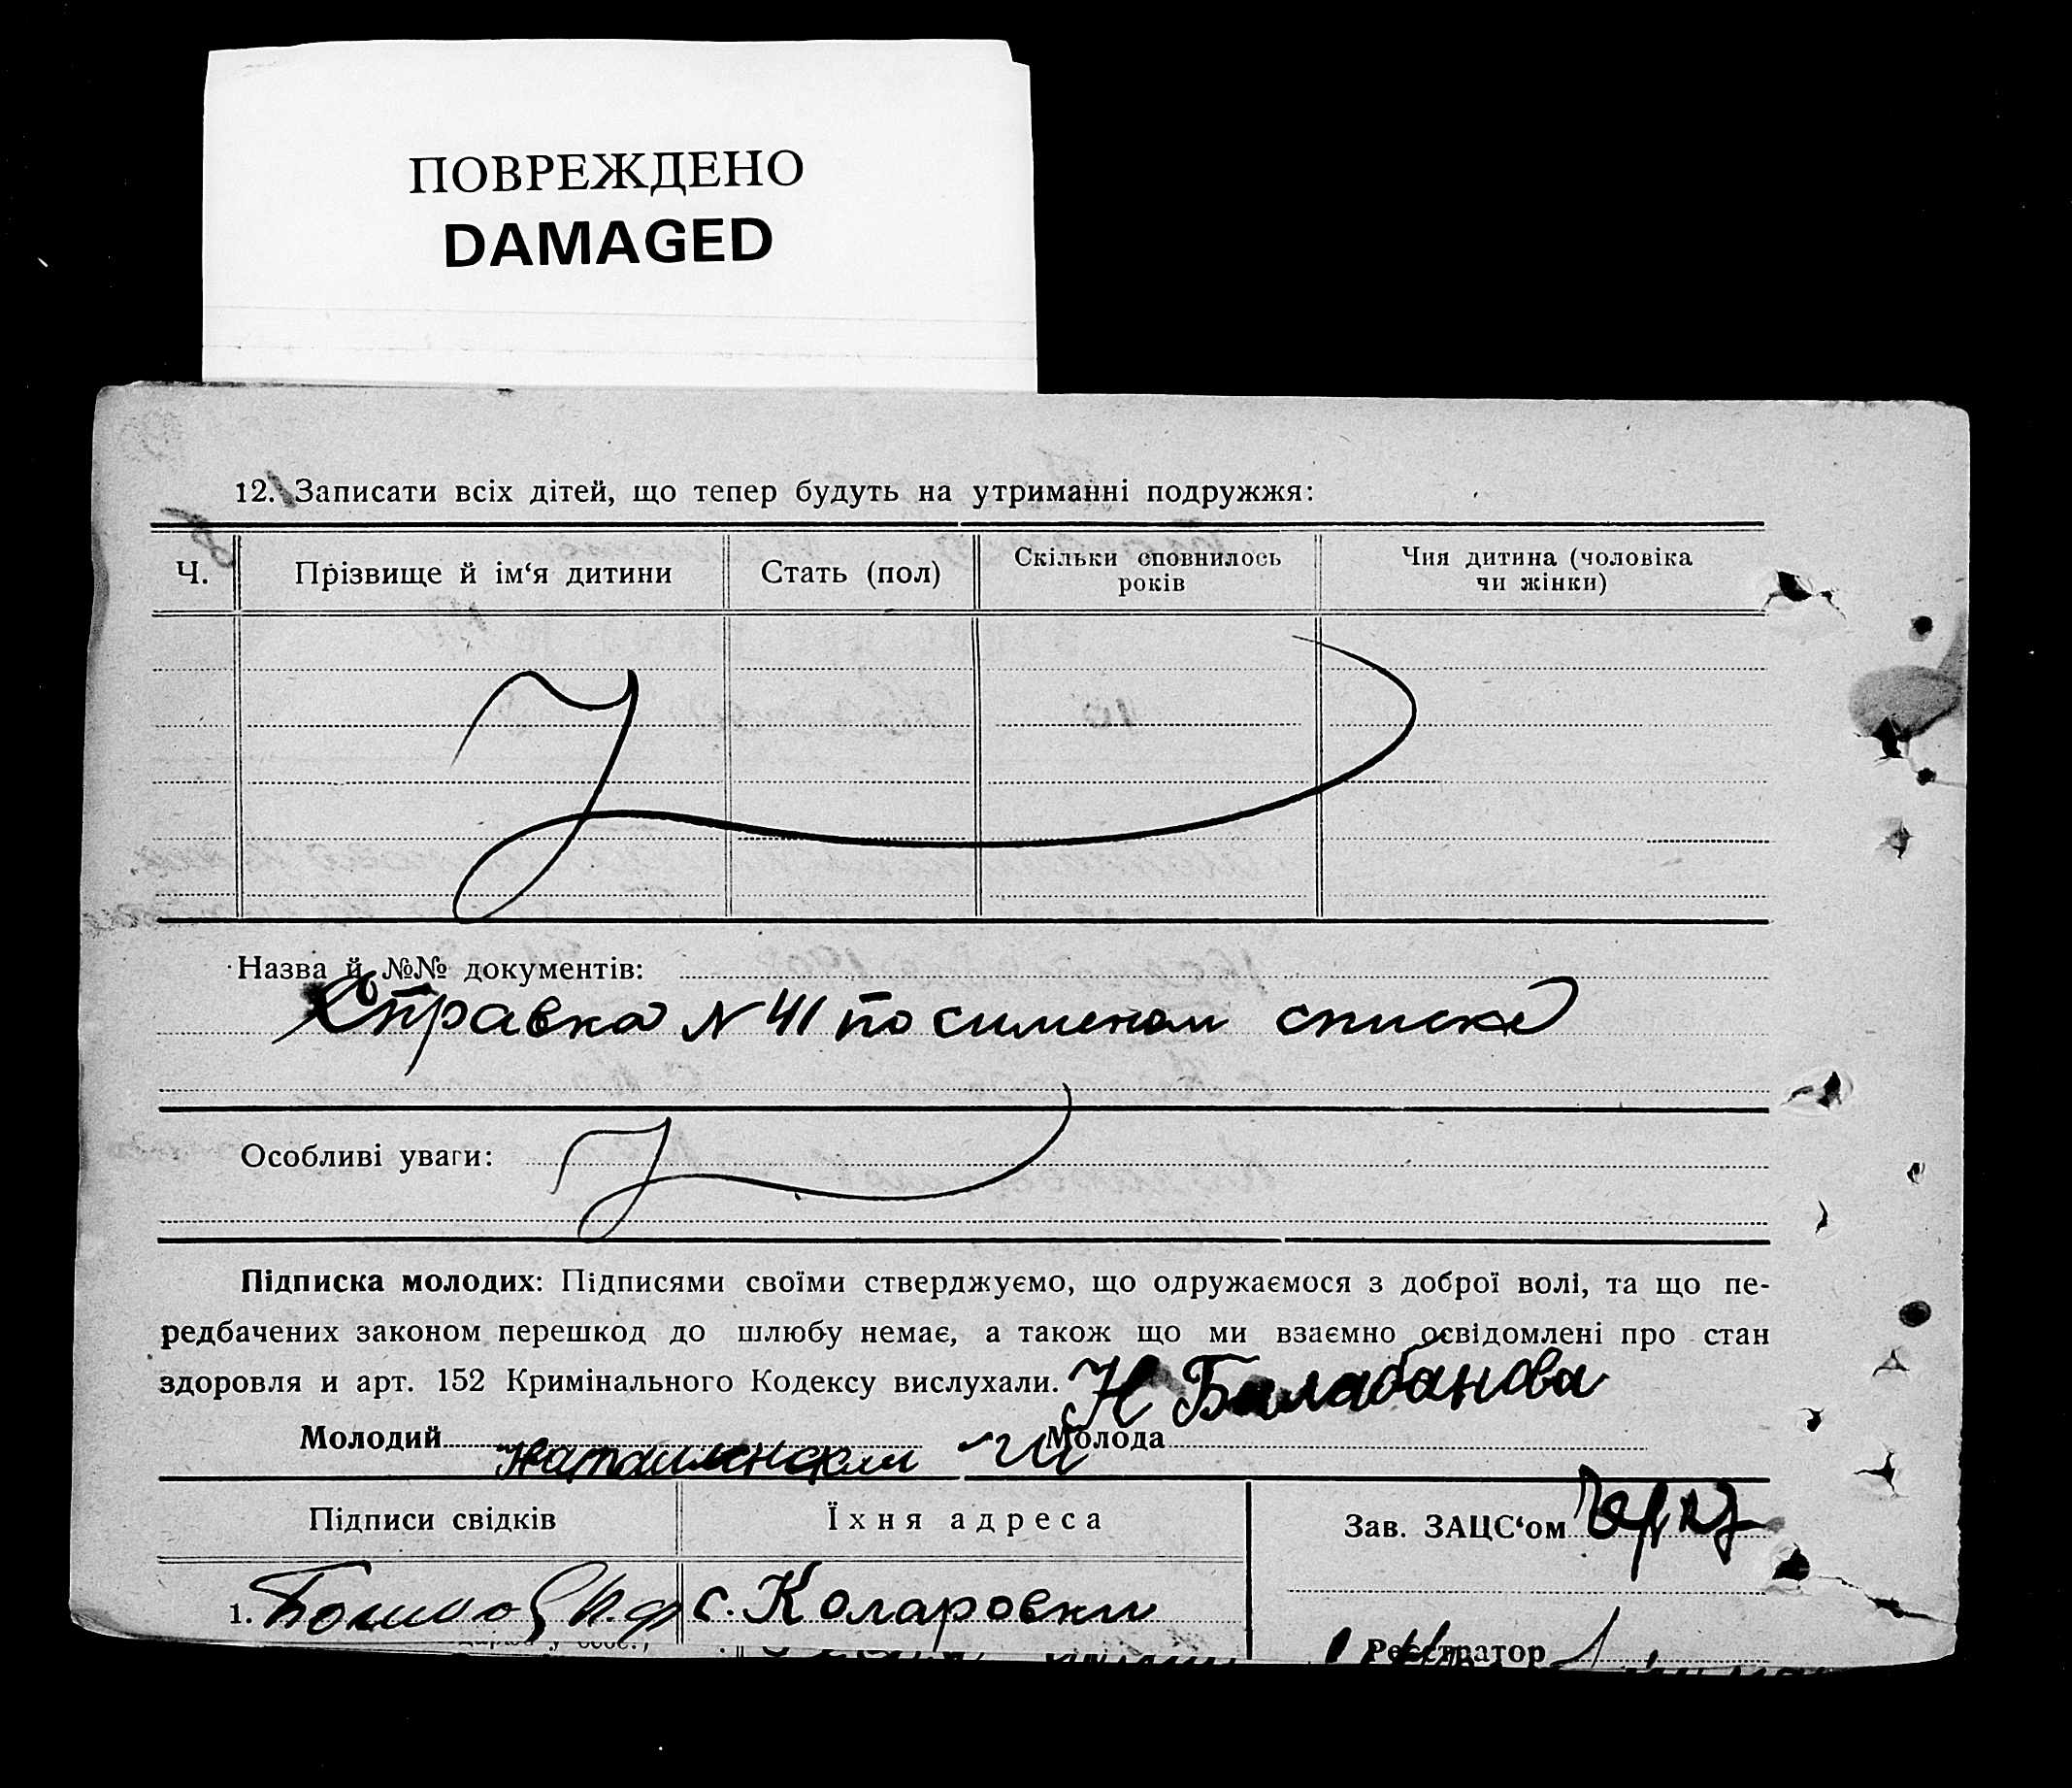 ПОВРЕЖДЕНО
DAMAGED
12. Записати всіх дітей, що тепер будуть на утриманні подружжя:
Ч. Прізвище й ім‘я дитини Стать (пол) Скільки сповнилось років Чия дитина (чоловіка чи жінки)
Назва й №№ документів:
Справка N 41 по сименом списке
Особливі уваги:
Підписка молодих: Підписями своїми стверджуємо, що одружаємося з доброї волі, та що пе-
редбачених законом перешкод до шлюбу немає, а також що ми взаємно освідомлені про стан
здоровля и арт. 152 Кримінального Кодексу вислухали.
Н Балабанова
Молодий Молода
Підписи свідків Їхня адреса Зав. ЗАЦС‘ом
1. с. Коларовки
Реєстратор